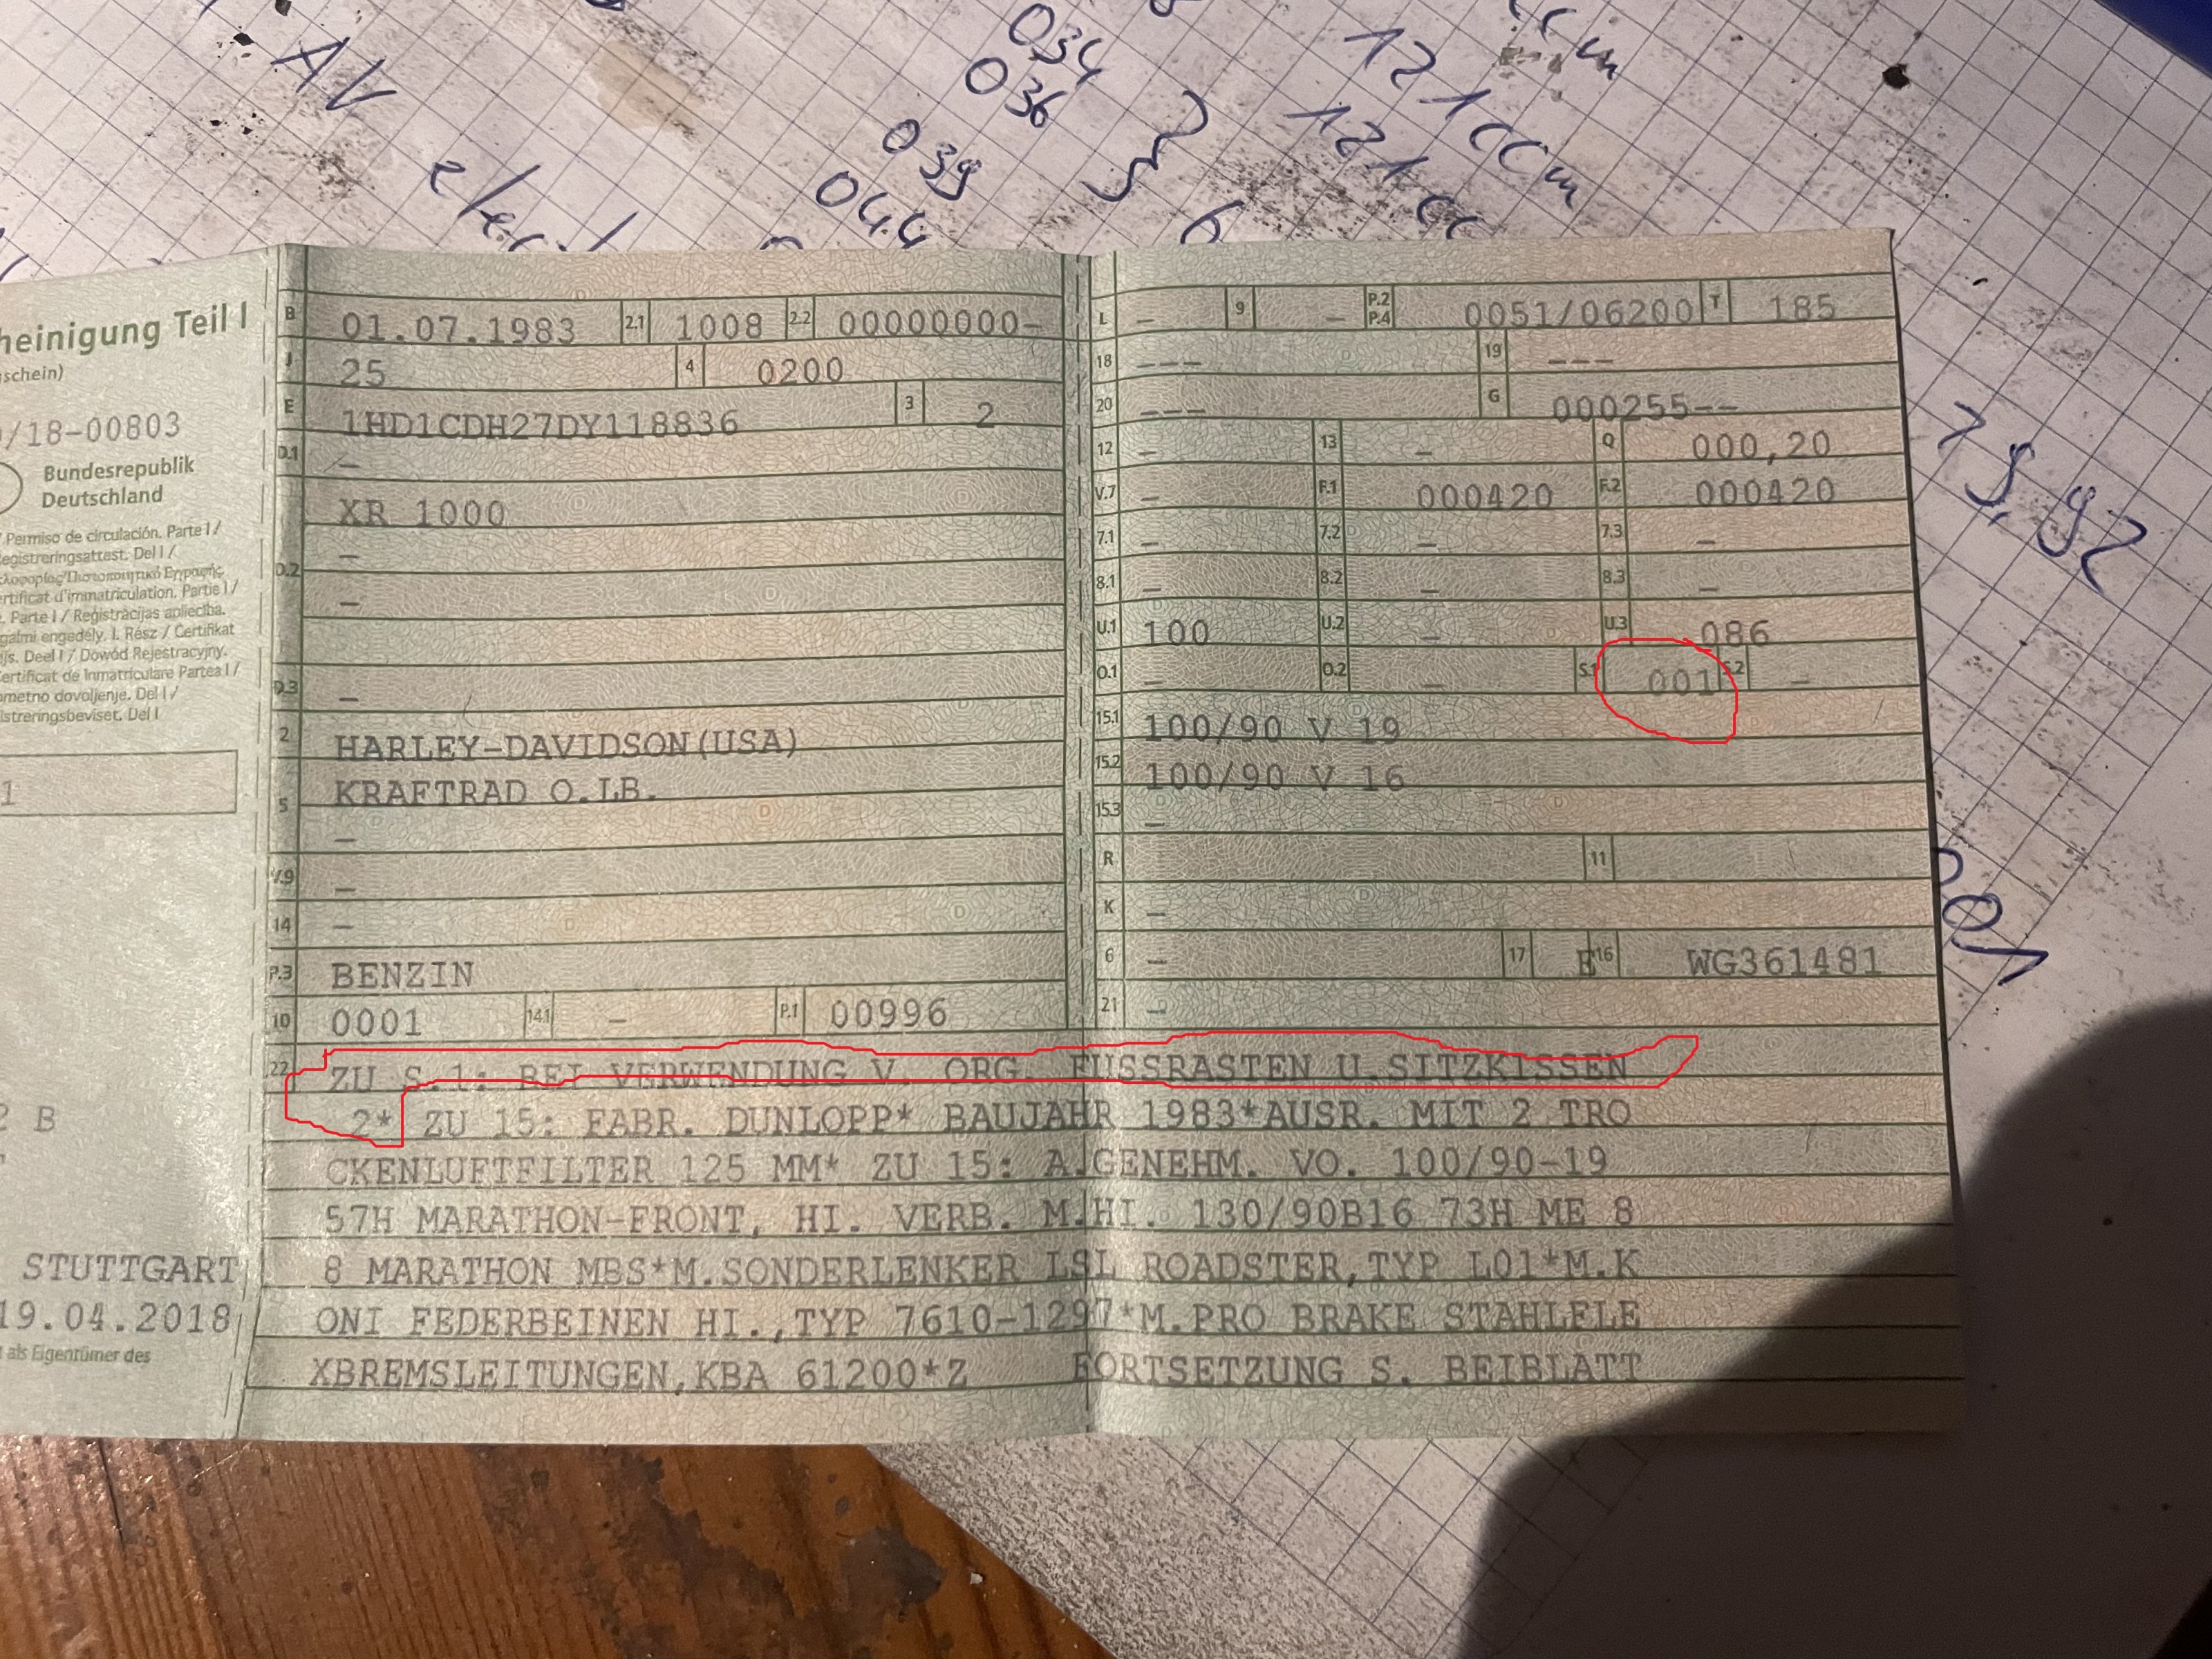 AV
elect
034
036
039
044
}
6
ccm
121 ccm
121 cc
79,92
heinigung Teil I
schein)
/18-00803
Bundesrepublik
Deutschland
/ Permiso de circulación. Parte I /
egistreringsattest. Del I /
ertificat d'immatriculation. Partie I /
. Parte I / Reģistrācijas apliecība.
galmi engedély. I. Rész / Certifikat
ijs. Deel I / Dowód Rejestracyjny.
ertificat de Inmatriculare Partea I /
ometno dovoljenje. Del I /
istreringsbeviset. Del I
1
2 B
STUTTGART
19.04.2018
als Eigentümer des
B 01.07.1983 2.1 1008 2.2 00000000-
J 25 4 0200
E 1HD1CDH27DY118836 3 2
D.1 –
XR 1000
–
D.2 –
D.3 –
2 HARLEY-DAVIDSON(USA)
5 KRAFTRAD O.LB.
–
V.9 –
14 –
P.3 BENZIN
10 0001 14.1 – P.1 00996
L – 9 – P.2 P.4 0051/06200 T 185
18 --- 19 ---
20 --- G 000255--
12 – 13 – Q 000,20
V.7 – F.1 000420 F.2 000420
7.1 – 7.2 – 7.3 –
8.1 – 8.2 – 8.3 –
U.1 100 U.2 – U.3 086
O.1 – O.2 – S.1 001 S.2 –
15.1 100/90 V 19
15.2 100/90 V 16
15.3 –
R 11
K –
6 – 17 E 16 WG361481
21 –
22 ZU S.1: BEI VERWENDUNG V. ORG. FUSSRASTEN U.SITZKISSEN
2* ZU 15: FABR. DUNLOPP* BAUJAHR 1983*AUSR. MIT 2 TRO
CKENLUFTFILTER 125 MM* ZU 15: A.GENEHM. VO. 100/90-19
57H MARATHON-FRONT, HI. VERB. M.HI. 130/90B16 73H ME 8
8 MARATHON MBS*M.SONDERLENKER LSL ROADSTER,TYP L01*M.K
ONI FEDERBEINEN HI.,TYP 7610-1297*M.PRO BRAKE STAHLFLE
XBREMSLEITUNGEN,KBA 61200*Z FORTSETZUNG S. BEIBLATT